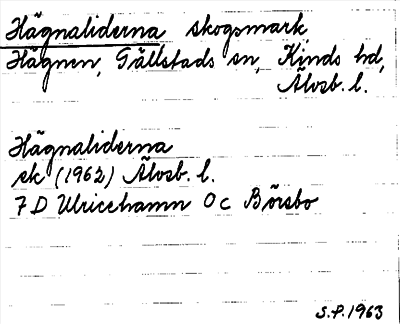 Hägnaliderna skogsmark,
Hägnen, Gällstads sn, Kinds hd,
Älvsb. l.
Hägnaliderna
ek (1962) Älvsb. l.
7 D Ulricehamn 0 c Börsbo
S.P. 1963